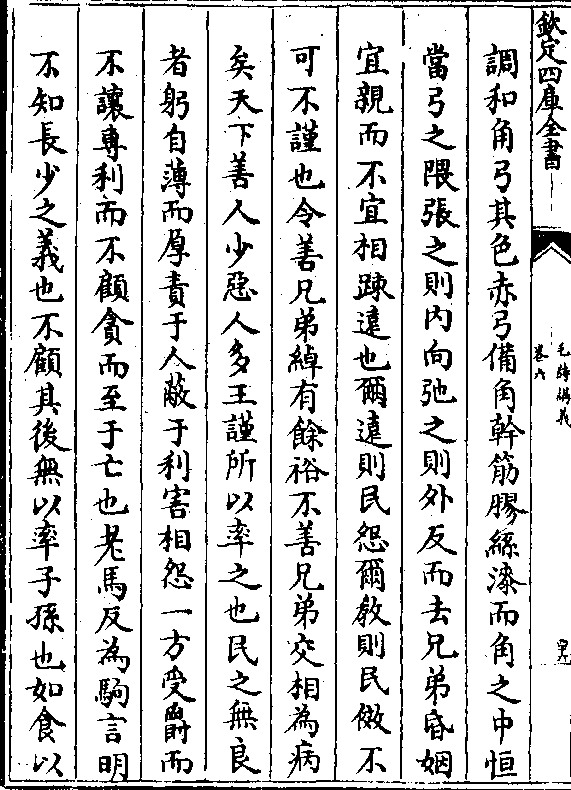 欽定四庫全書
毛詩講義
卷六
調和角弓其色赤弓備角幹筋膠絲漆而角之中恒
當弓之隈張之則内向弛之則外反而去兄弟昏姻
宜親而不宜相踈逺也爾逺則民怨爾教則民傚不
可不謹也令善兄弟綽有餘裕不善兄弟交相為病
矣天下善人少惡人多王謹所以率之也民之無良
者躬自薄而厚責于人蔽于利害相怨一方受爵而
不讓專利而不顧貪而至于亡也老馬反為駒言明
不知長少之義也不顧其後無以率子孫也如食以